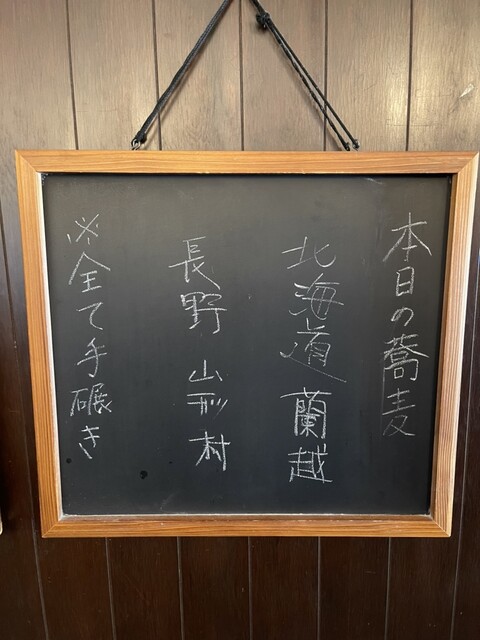 本日の蕎麦
北海道 蘭越
長野 山形村
※全て手碾き